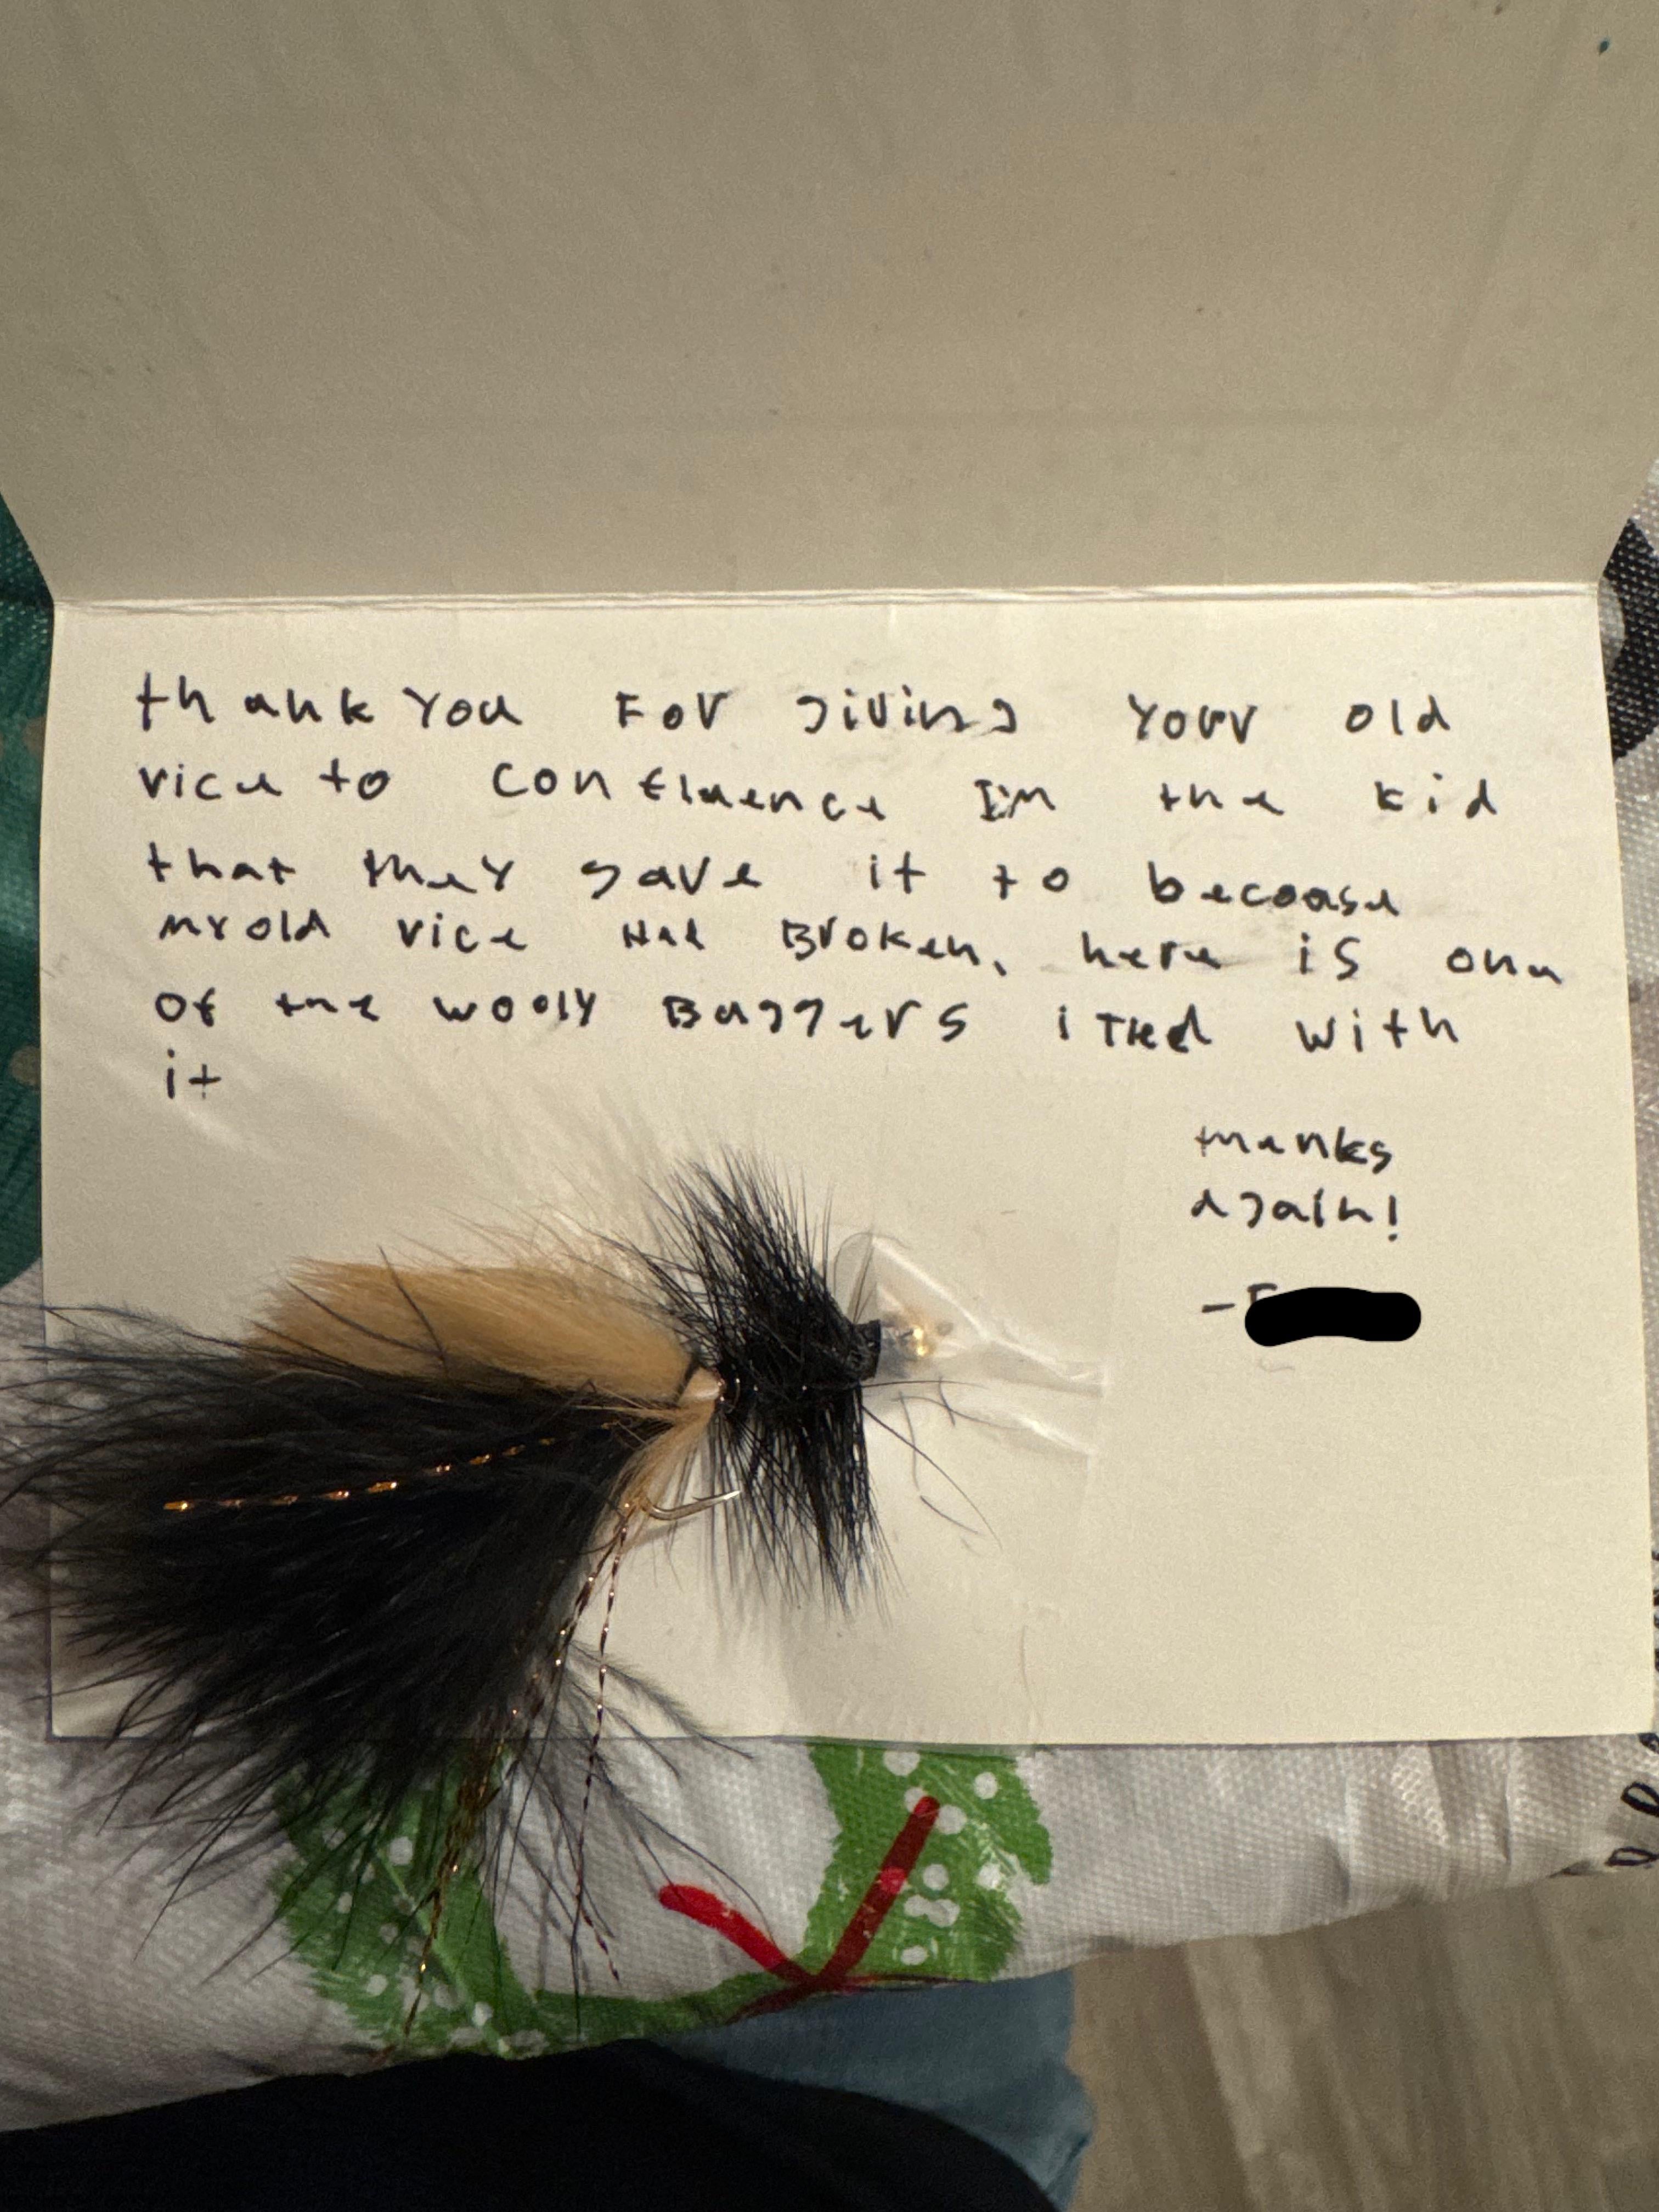 thank you For giving your old
vice to confluence I'm the kid
that they gave it to becoase
my old vice Had Broken, here is one
of the wooly Buggers i Tied with
it
thanks
again!